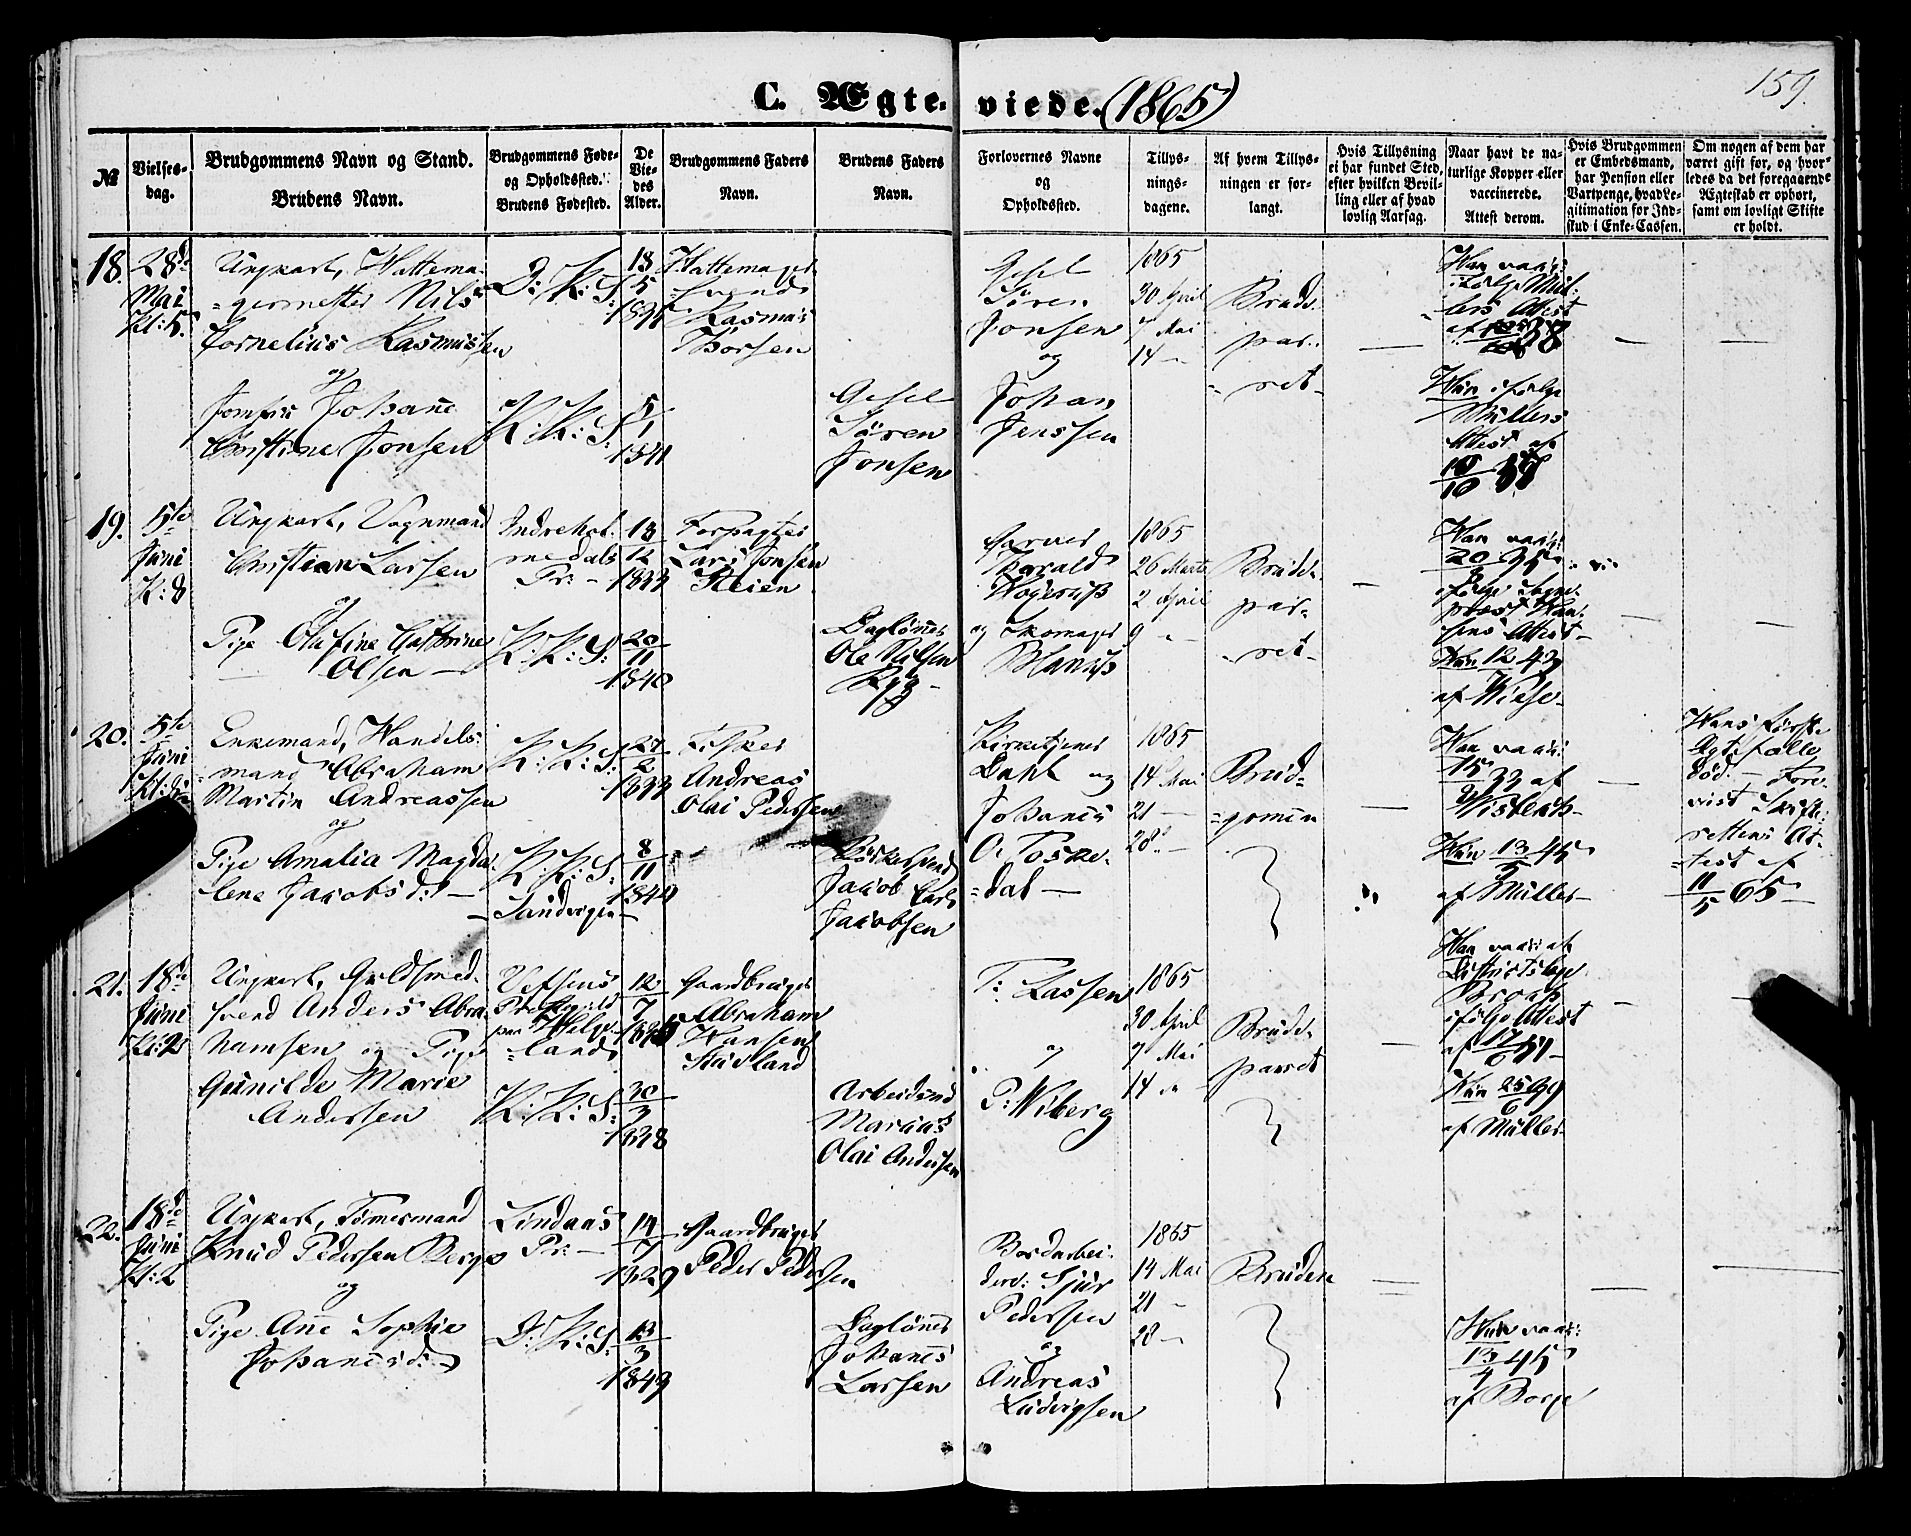 159.
C. Ægte- viede. (1865)
№
Vielses-
dag.
Brudgommens Navn og Stand.
Brudens Navn.
Brudgommens Føde-
og Opholdssted.
Brudens Fødested.
De
Vie-
des
Alder.
Brudgommens Faders
Navn.
Brudens Faders
Navn.
Forlovernes Navne
og
Opholdssted.
Tillys-
nings-
dagene.
Af hvem Tillys-
ningen er for-
langt.
Hvis Tillysning
ei har fundet Sted,
efter hvilken Bevil-
ling eller af hvad
lovlig Aarsag.
Naar havt de na-
turlige Kopper eller
vaccinerede.
Attest derom.
Hvis Brudgommen
er Embedsmand,
har Pension eller
Vartpenge, hvad Le-
gitimation for Ind-
skud i Enke-Cassen.
Om nogen af dem har
været gift før, og hvor-
ledes da det foregaaende
Ægteskab er ophørt,
samt om lovligt Skifte
er holdt.
18.
28de
Mai
Kl: 5.
Ungkarl, Vattema-
germester Nils
Cornelius Rasmussen
og
Jomfru Johanne
Christine Jonsen
D: K: S:
K: K: S:
18
5
5
1
1841
Vattemager
Svend
Rasmus
Thorsen
Gesel
Søren
Jonsen
Gesel
Søren
Jonsen
og
Johan
Jenssen
1865
30 April
7 Mai
14 "
Brude-
par-
ret
Han vacc:
ifølge Mül-
lers Attest
af
Hun ifølge
Müllers
Attest af
19.
5te
Juni
Kl: 8
Ungkarl, Vognmand
Christian Larsen
og
Pige Olufine Cathrine
Olsen
Indrehol-
medals
Pr:
K: K: S:
18
12
1833
20
11
1840
Forpagter
Lars Jonsen
Steien
Dagløner
Ole Nilsen
Garver
Harald
og Skomager
1865
26 Marts
2 April
9 "
Brude-
par-
ret
Han vacc:
20
35
ifølge Sogne-
præst Han-
sens Attest
Hun 12 43
af Wiese
20.
5te
Juni
Enkemand, Handels-
mand Abraham
Martin Andreassen
og
Pige Amalia Magda-
lene Jacobsd:
K: K: S:
K: K: S:
Sandvigen
27
2
1833
8
11
1844
Fisker
Andreas
Olai Pedersen
Bødkersvend
Jacob Carl
Jacobsen
Kirketjener
Dahl og
Johannes
O. Toske-
dal
1865
14 Mai
21 "
28 "
Brud-
gommen
Han vacc:
15
33 af
Wisbech
Hun 13 45
5
af Müller
Hans første
Ægtefælle
død. Fore-
vist Skifte-
rettens At-
test af
11
5 65
21.
18de
Juni
Kl: 2
Ungkarl, Guldsmed-
svend Anders Abra-
hamsen og Pige
Gunilde Marie
Andersen
Vefsens
Præstegjeld
paa Helge-
land
K: K: S:
12
7
30
3
1838
Gaardbruger
Abraham
Hansen
Studland
Arbeidsmd
Marius
Olai Andersen
T: Lassen
og
P: Wiberg
1865
30 April
7 Mai
14 "
Brude-
parret
Han vacc: af
Districtslæge
Broch
ifølge Attest
af 17
6 51
Hun 25 39
6
af Müller
22.
18de
Juni
Kl: 2
Ungkarl, Tømmermand
Knud Pedersen Berge
og
Pige Anne Sophie
Johannesd:
Lindaas
Pr:
D: K: S:
14
7
1829
13
3
1843
Gaardbruger
Peder Pedersen
Dagløner
Johannes
Larsen
Bordarbei-
der: Sjur
Pedersen
og
Andreas
Ludvigsen
1865
14 Mai
21 "
28 "
Bruden
Hun vacc:
13
7 45
af Borge